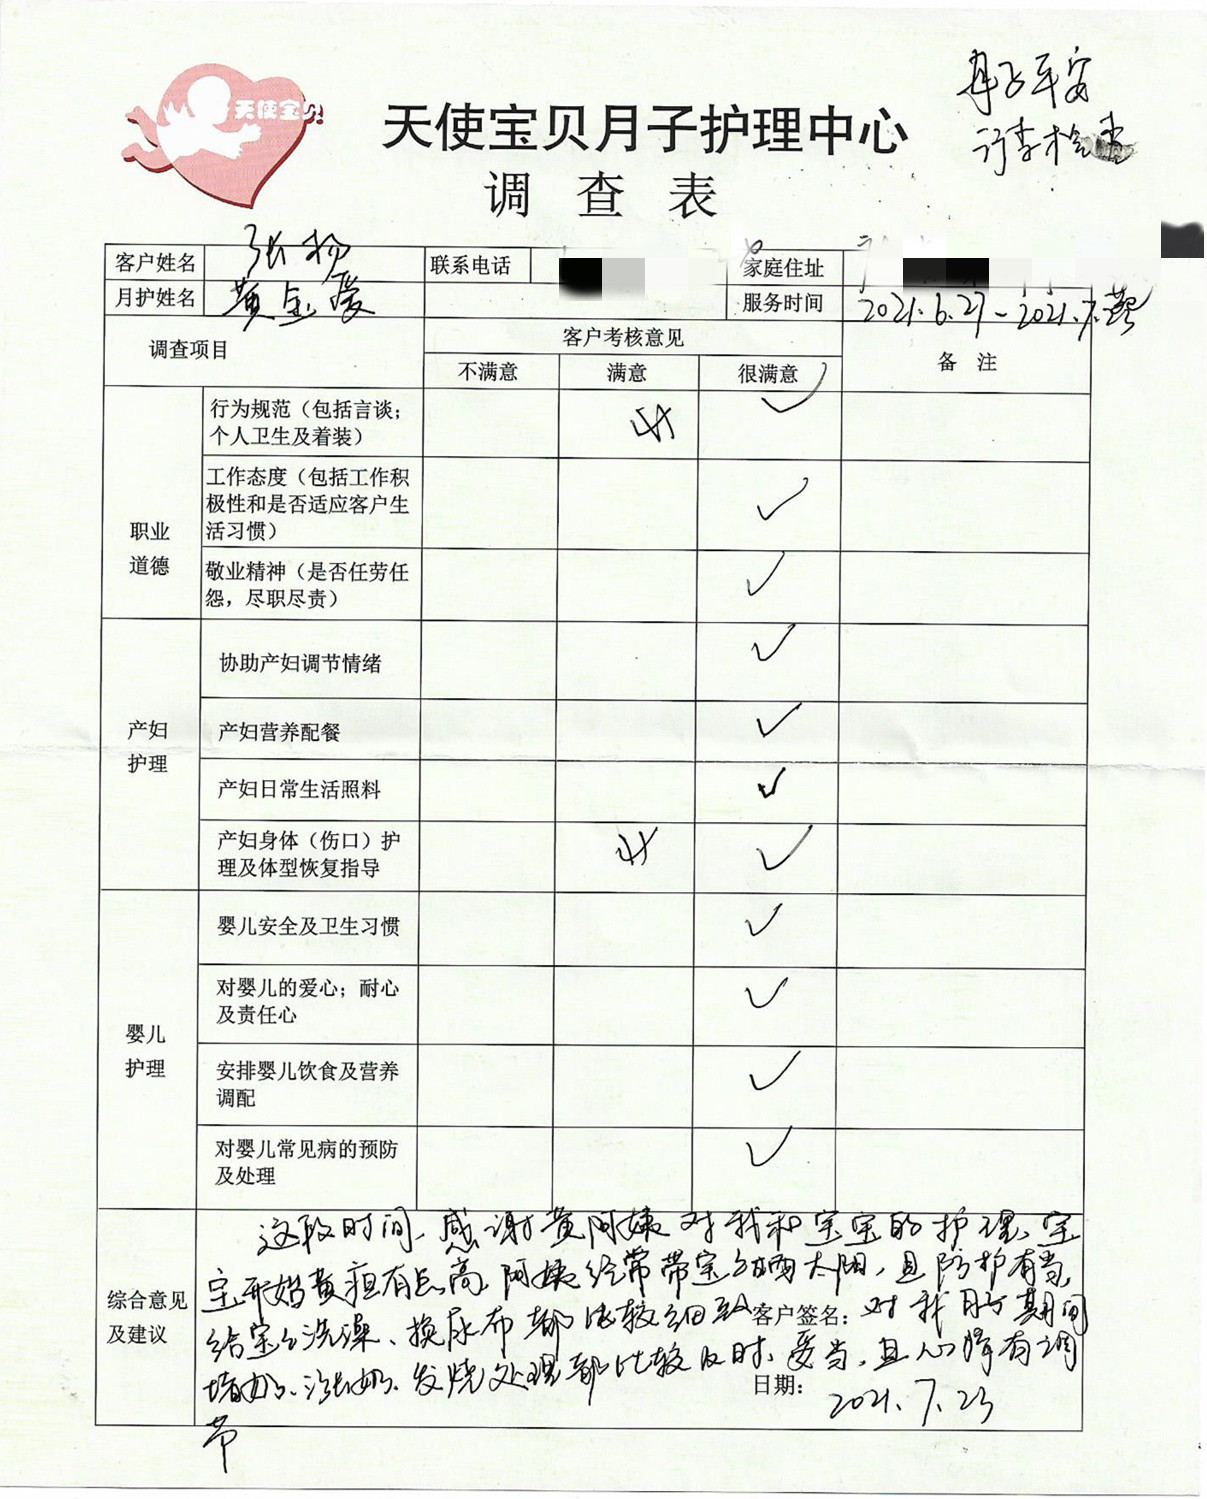 月子平安
行李检查
天使宝贝
天使宝贝月子护理中心
调 查 表
客户姓名 张杨 联系电话 家庭住址
月护姓名 黄金爱 服务时间 2021.6.27-2021.7.
调查项目 客户考核意见 备 注
不满意 满意 很满意
职业
道德
行为规范（包括言谈；
个人卫生及着装）
工作态度（包括工作积
极性和是否适应客户生
活习惯）
敬业精神（是否任劳任
怨，尽职尽责）
产妇
护理
协助产妇调节情绪
产妇营养配餐
产妇日常生活照料
产妇身体（伤口）护
理及体型恢复指导
婴儿
护理
婴儿安全及卫生习惯
对婴儿的爱心；耐心
及责任心
安排婴儿饮食及营养
调配
对婴儿常见病的预防
及处理
综合意见
及建议
这段时间，感谢黄阿姨对我和宝宝的护理，宝
宝开始黄疸有点高，阿姨经常带宝宝晒太阳，且防护有当，
给宝宝洗澡、换尿布都比较细致 客户签名： 对我月子期间
堵奶、涨奶、发烧处理都比较及时、妥当，且心情有调
日期： 2021.7.23
节